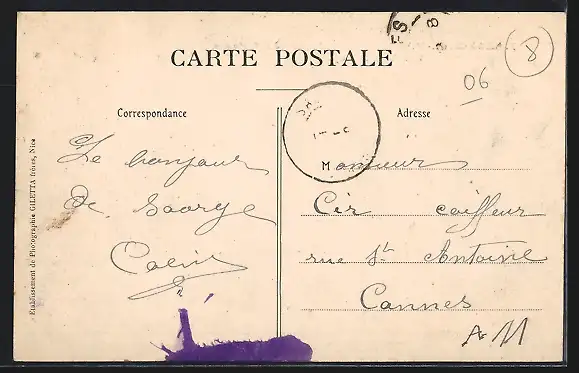 CARTE POSTALE
8
06
Correspondance
Adresse
Le bonjour
de Saorge
Colin
Monsieur
Cir coiffeur
rue St Antoine
Cannes
A-11
Etablissement de Photographie GILETTA frères, Nice